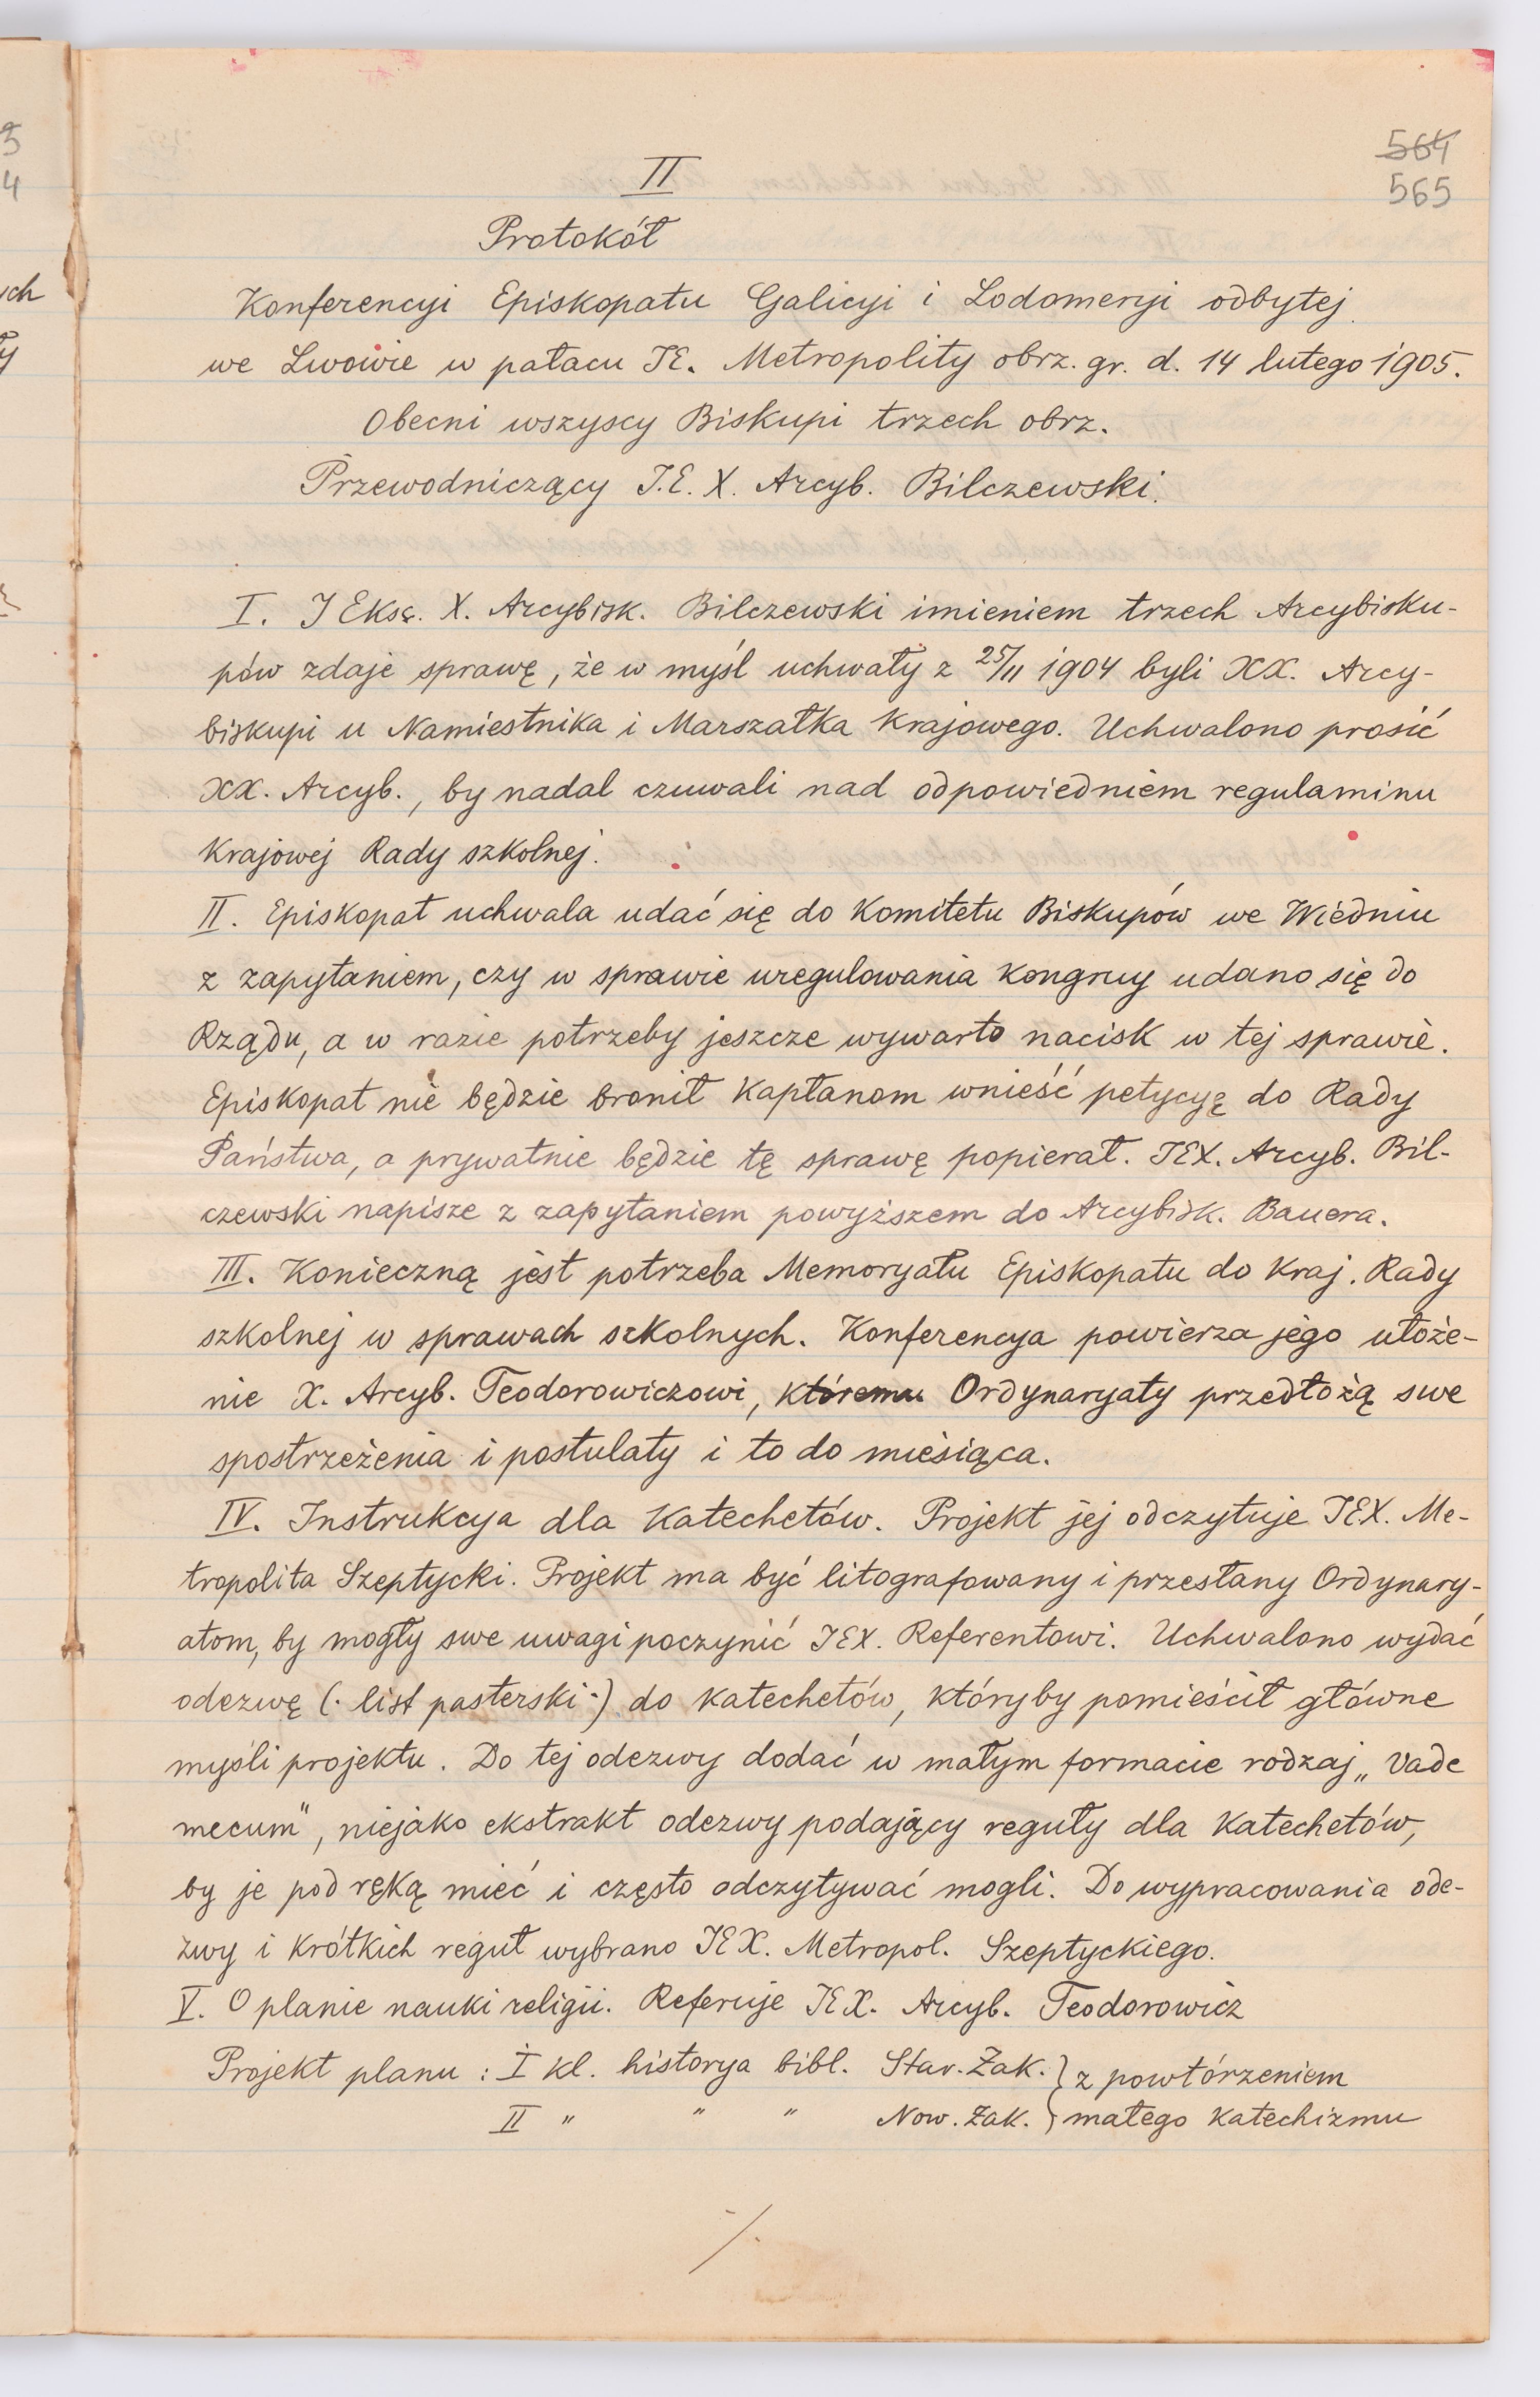 564
565
II
Protokół
Konferencyi Episkopatu Galicyi i Lodomeryi odbytej
we Lwowie w pałacu JE. Metropolity obrz. gr. d. 14 lutego 1905.
Obecni wszyscy Biskupi trzech obrz.
Przewodniczący J.E. X. Arcyb. Bilczewski.
I. J Eksc. X. Arcybisk. Bilczewski imieniem trzech Arcybisku-
pów zdaje sprawę, że w myśl uchwały z 25/II 1904 byli XX. Arcy-
biskupi u Namiestnika i Marszałka Krajowego. Uchwalono prosić
XX. Arcyb., by nadal czuwali nad odpowiedniem regulaminu
Krajowej Rady szkolnej.
II. Episkopat uchwala udać się do Komitetu Biskupów we Wiedniu
z zapytaniem, czy w sprawie uregulowania Kongruy udano się do
Rządu, a w razie potrzeby jeszcze wywarto nacisk w tej sprawie.
Episkopat nie będzie bronił Kapłanom wnieść petycyę do Rady
Państwa, a prywatnie będzie tę sprawę popierał. JEX. Arcyb. Bil-
czewski napisze z zapytaniem powyższem do Arcybisk. Bauera.
III. Konieczną jest potrzeba Memoryału Episkopatu do Kraj. Rady
szkolnej w sprawach szkolnych. Konferencya powierza jego ułoże-
nie X. Arcyb. Teodorowiczowi, któremu Ordynaryaty przedłożą swe
spostrzeżenia i postulaty i to do miesiąca.
IV. Instrukcya dla Katechetów. Projekt jej odczytuje JEX. Me-
tropolita Szeptycki. Projekt ma być litografowany i przesłany Ordynary-
atom, by mogły swe uwagi poczynić JEX. Referentowi. Uchwalono wydać
odezwę (· list pasterski ·) do Katechetów, któryby pomieścił główne
myśli projektu. Do tej odezwy dodać w małym formacie rodzaj „Vade
mecum", niejako ekstrakt odezwy podający reguły dla Katechetów,
by je pod ręką mieć i często odczytywać mogli. Do wypracowania ode-
zwy i krótkich reguł wybrano JEX. Metropol. Szeptyckiego.
V. O planie nauki religii. Referuje JEX. Arcyb. Teodorowicz
Projekt planu : I kl. historya bibl. Star. Zak. } z powtórzeniem
II " " " Now. Zak. } małego Katechizmu
./.
5
4
ych
ły